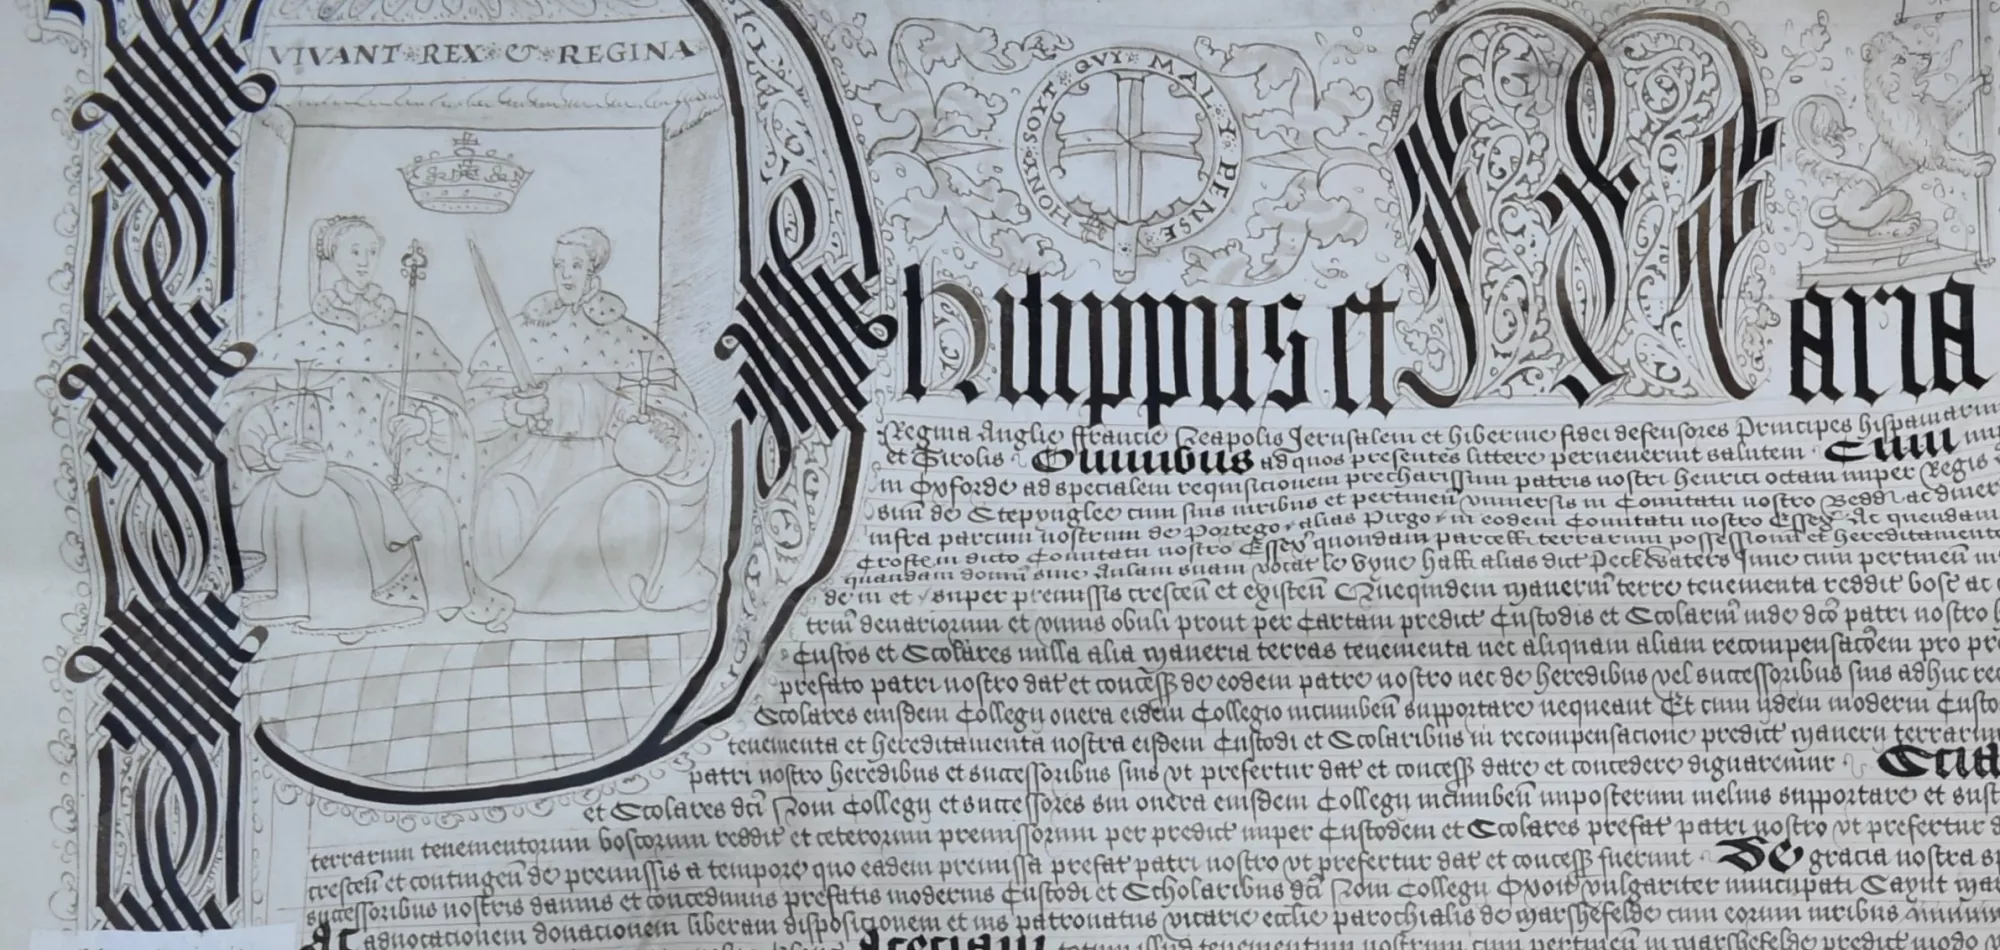 VIVANT REX & REGINA
HONY SOYT QVY MAL Y PENSE
Philippus et Maria
Regina Anglie ffrancie Neapolis Jerusalem et hibernie fidei defensores Principes hispaniarum
et Tirolis Omnibus ad quos presentes littere pervenerint salutem Cum
in Oxforde ad specialem requisicionem precharissimi patris nostri henrici octavi nuper Regis
de Stepynglee cum suis iuribus et pertineñ vniversis in Comitatu nostro Bedd ac
infra parcum nostrum de Portego alias Pirgo in eodem Comitatu nostro Essex Ac quendam
Crofte in dicto Comitatu nostro Essex quondam parcell terrarum possession et hereditamento
quandam domū sive Aulam suam vocat le Vyne hall alias dict Peckwaters Inne cum pertineñ
in et super premissis cresceñ et existeñ Quequidem maneriū terre tenementa reddit bosc ac
denariorum et vnius obuli prout per Cartam predict Custodis et Scolariū inde dc̄o patri nostro
Custos et Scolares nulla alia maneria terras tenementa nec aliquam aliam recompensac̄oem pro
prefato patri nostro dat et concess de eodem patre nostro nec de heredibus vel successoribus suis adhuc
Scolares eiusdem Collegii onera eidem Collegio incumbeñ supportare nequeant Et cum iidem moderni
tenementa et hereditamenta nostra eisdem Custodi et Scolaribus in recompensacione predict manerii terrarum
patri nostro heredibus et successoribus suis vt prefertur dat et concess dare et concedere dignaremur
et Scolares dc̄i Novi Collegii et successores sui onera eiusdem Collegii incumbeñ imposterum melius supportare et
terrarum tenementorum boscorum reddit et ceterorum premissorum per predict nuper Custodem et Scolares prefat patri nostro vt prefertur
cresceñ et contingeñ de premissis a tempore quo eadem premissa prefat patri nostro vt prefertur dat et concess fuerunt De gracia nostra
successoribus nostris damus et concedimus prefatis modernis Custodi et Scholaribus dc̄i Novi Collegii Oxoñ vulgariter nuncupati Saynt
Ac advocacionem donacionem liberam disposicionem et ius patronatus vicarie ecclie parochialis de Marshefelde cum eorum iuribus
totum illud tenementum nostrum cum pertineñ in Marshefelde predict modo